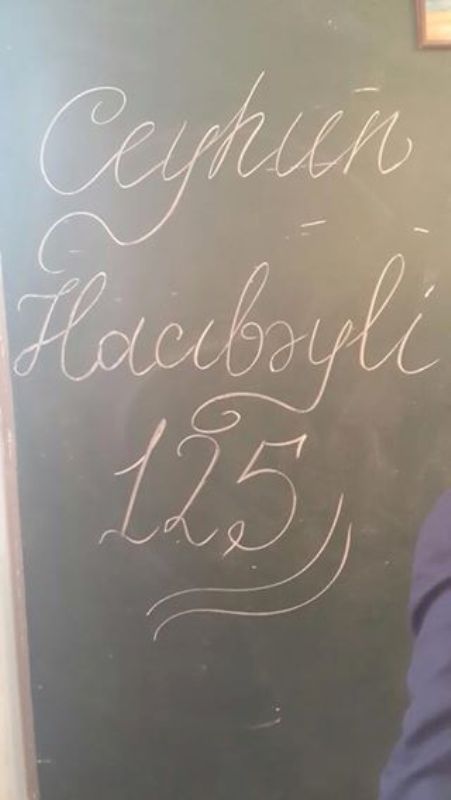 Ceyhun
Hacıbəyli
125